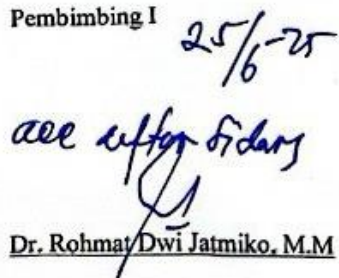 Pembimbing I
25/6-25
acc daftar Sidang
Dr. Rohmat Dwi Jatmiko, M.M